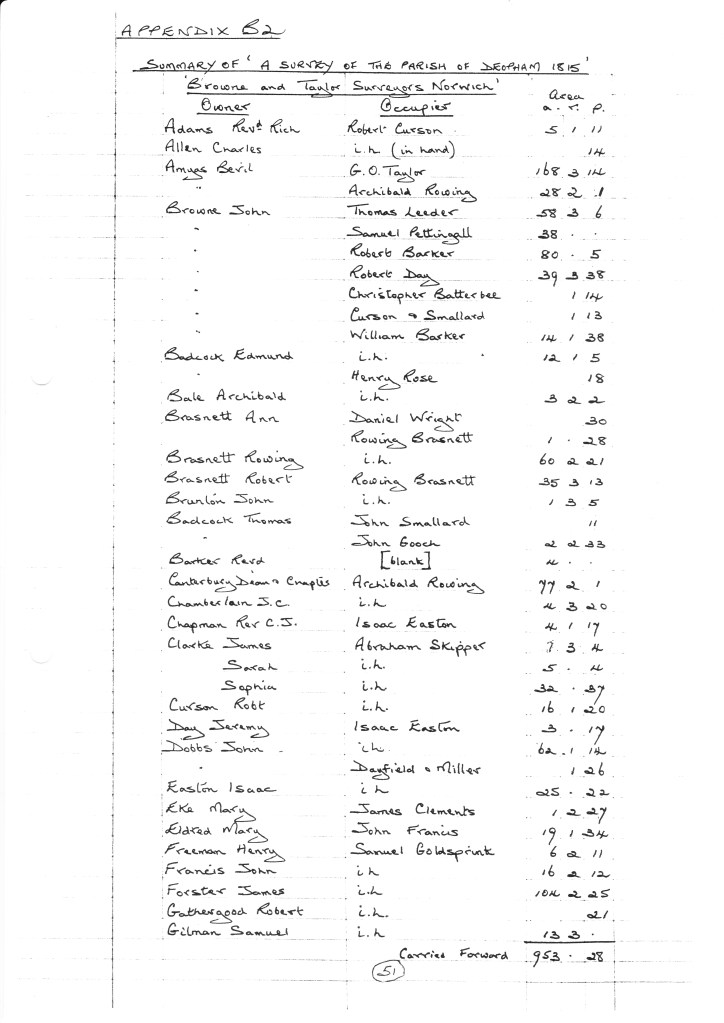 APPENDIX B2
SUMMARY OF 'A SURVEY OF THE PARISH OF DEOPHAM 1815'
'Browne and Taylor Surveyors Norwich'
Owner Occupier Area a. r. p.
Adams Revd Rich Robert Curson 5 1 11
Allen Charles i.h (in hand) 14
Amyas Bevil G.O. Taylor 168 3 14
" Archibald Rowing 28 2 1
Browne John Thomas Leeder 58 3 6
" Samuel Pettingall 38 . .
" Robert Barker 80 . 5
" Robert Day 39 3 38
" Christopher Batterbee 1 14
" Curson & Smallard 1 13
" William Barker 14 1 38
Badcock Edmund i.h. 12 1 5
Henry Rose 18
Bale Archibald i.h. 3 2 2
Brasnett Ann Daniel Wright 30
Rowing Brasnett 1 . 28
Brasnett Rowing i.h. 60 2 21
Brasnett Robert Rowing Brasnett 35 3 13
Brunton John i.h. 1 3 5
Badcock Thomas John Smallard 11
John Gooch 2 2 33
Barker Revd [blank] 4 . .
Canterbury Dean & Chaptes Archibald Rowing 77 2 1
Chamberlain J.C. i.h 4 3 20
Chapman Rev C.J. Isaac Easton 4 1 17
Clarke James Abraham Skipper 7 3 4
Sarah i.h. 5 . 4
Sophia i.h 32 . 37
Curson Robt i.h. 16 1 20
Day Jeremy Isaac Easton 3 . 17
Dobbs John ih. 62 . 1 14
" Dayfield & Miller 1 26
Easton Isaac i h 25 . 22
Eke Mary James Clements 1 2 27
Eldred Mary John Francis 19 1 34
Freeman Henry Samuel Goldsprink 6 2 11
Francis John i h 16 2 12
Forster James i.h 104 2 25
Gathergood Robert i.h. 21
Gilman Samuel i.h 13 3 .
Carried Forward 953 . 28
51